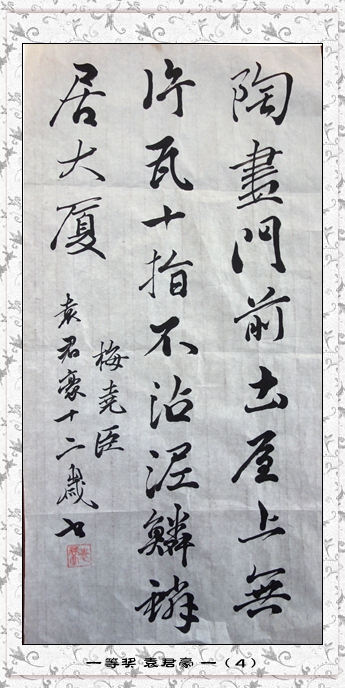 陶盡門前土屋上無
片瓦十指不沾泥鱗鱗
居大厦
梅尧臣
袁君豪十二歲书
一等奖 袁君豪 一（4）